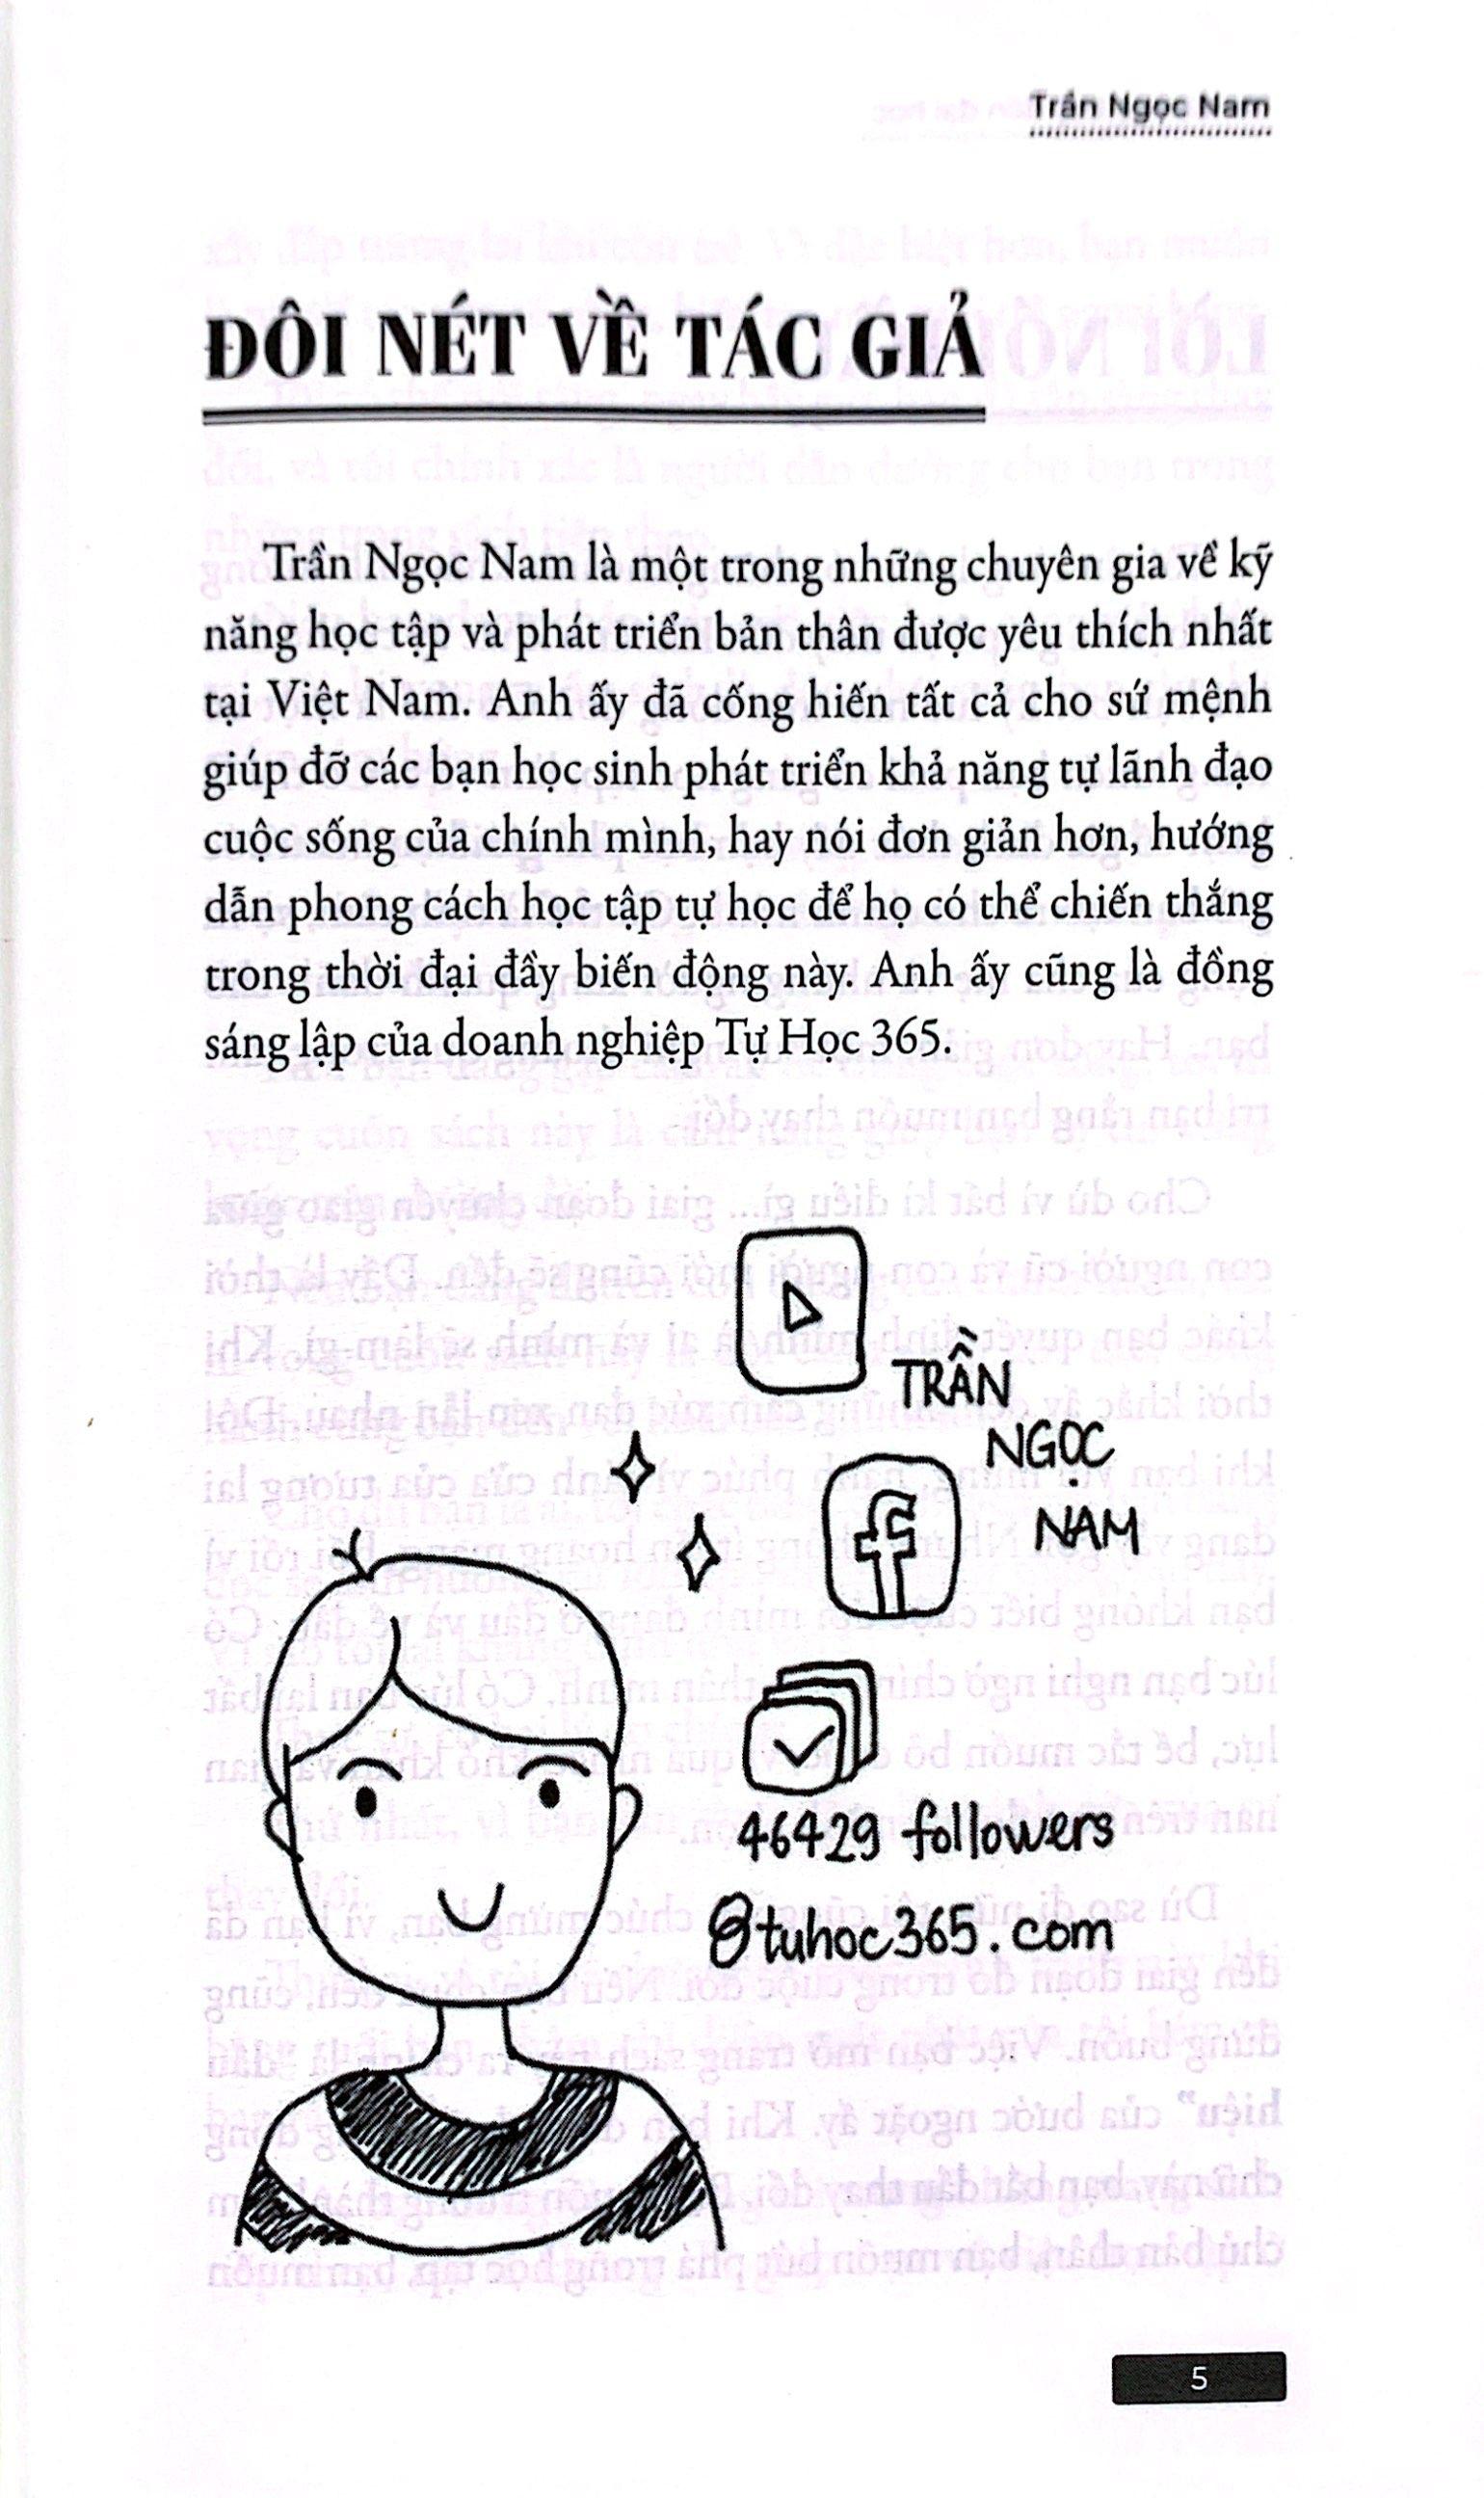 Trần Ngọc Nam
ĐÔI NÉT VỀ TÁC GIẢ
Trần Ngọc Nam là một trong những chuyên gia về kỹ
năng học tập và phát triển bản thân được yêu thích nhất
tại Việt Nam. Anh ấy đã cống hiến tất cả cho sứ mệnh
giúp đỡ các bạn học sinh phát triển khả năng tự lãnh đạo
cuộc sống của chính mình, hay nói đơn giản hơn, hướng
dẫn phong cách học tập tự học để họ có thể chiến thắng
trong thời đại đầy biến động này. Anh ấy cũng là đồng
sáng lập của doanh nghiệp Tự Học 365.
TRẦN
NGỌC
NAM
46429 followers
@tuhoc365.com
5